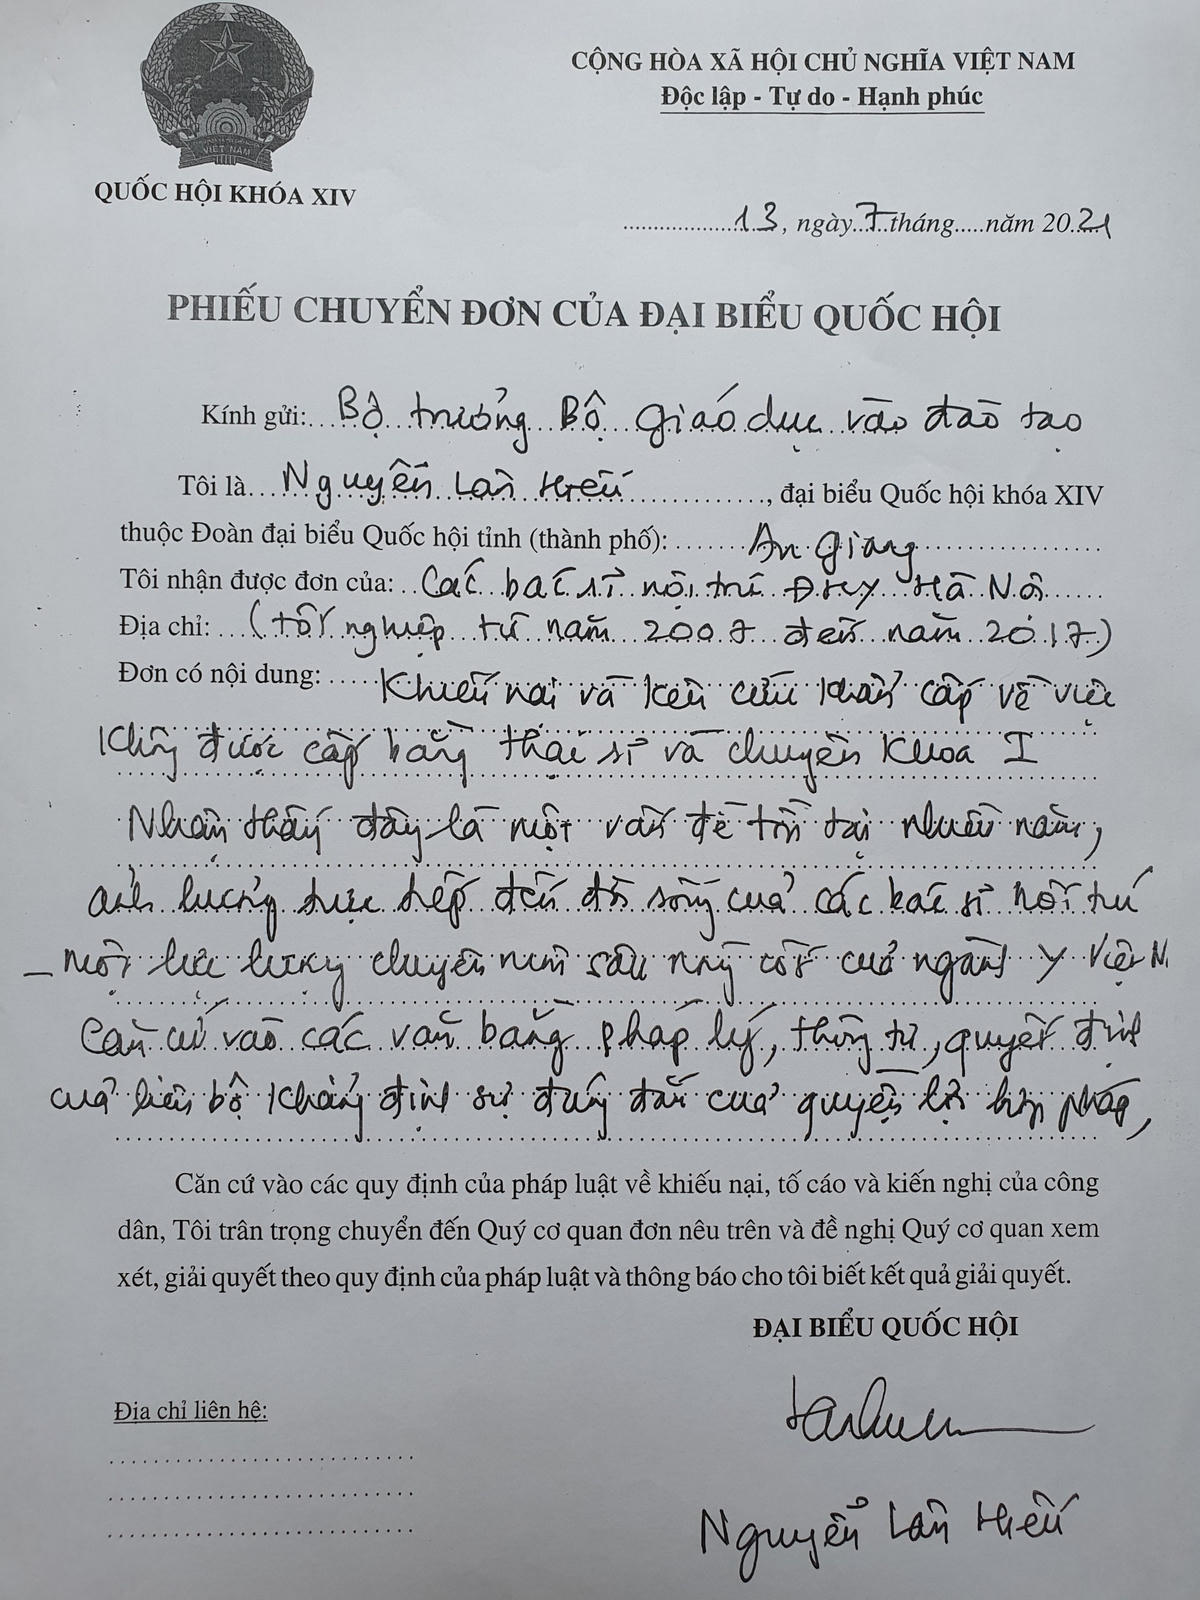 VIỆT NAM
QUỐC HỘI KHÓA XIV
CỘNG HÒA XÃ HỘI CHỦ NGHĨA VIỆT NAM
Độc lập - Tự do - Hạnh phúc
....................13, ngày..7..tháng.....năm 20.21
PHIẾU CHUYỂN ĐƠN CỦA ĐẠI BIỂU QUỐC HỘI
Kính gửi: Bộ trưởng Bộ Giáo dục và đào tạo
Tôi là Nguyễn Lân Hiếu, đại biểu Quốc hội khóa XIV
thuộc Đoàn đại biểu Quốc hội tỉnh (thành phố): An Giang
Tôi nhận được đơn của: Các bác sĩ nội trú ĐHY Hà Nội
Địa chỉ: (tốt nghiệp từ năm 2007 đến năm 2017)
Đơn có nội dung: Khiếu nại và kêu cứu khẩn cấp về việc
không được cấp bằng thạc sĩ và chuyên khoa I
Nhận thấy đây là một vấn đề tồn tại nhiều năm,
ảnh hưởng trực tiếp đến đời sống của các bác sĩ nội trú
– một lực lượng chuyên môn sâu nòng cốt của ngành Y Việt N.
Căn cứ vào các văn bằng pháp lý, thông tư, quyết định
của liên bộ khẳng định sự đúng đắn của quyền lợi hợp pháp,
Căn cứ vào các quy định của pháp luật về khiếu nại, tố cáo và kiến nghị của công
dân, Tôi trân trọng chuyển đến Quý cơ quan đơn nêu trên và đề nghị Quý cơ quan xem
xét, giải quyết theo quy định của pháp luật và thông báo cho tôi biết kết quả giải quyết.
ĐẠI BIỂU QUỐC HỘI
Địa chỉ liên hệ:
Nguyễn Lân Hiếu